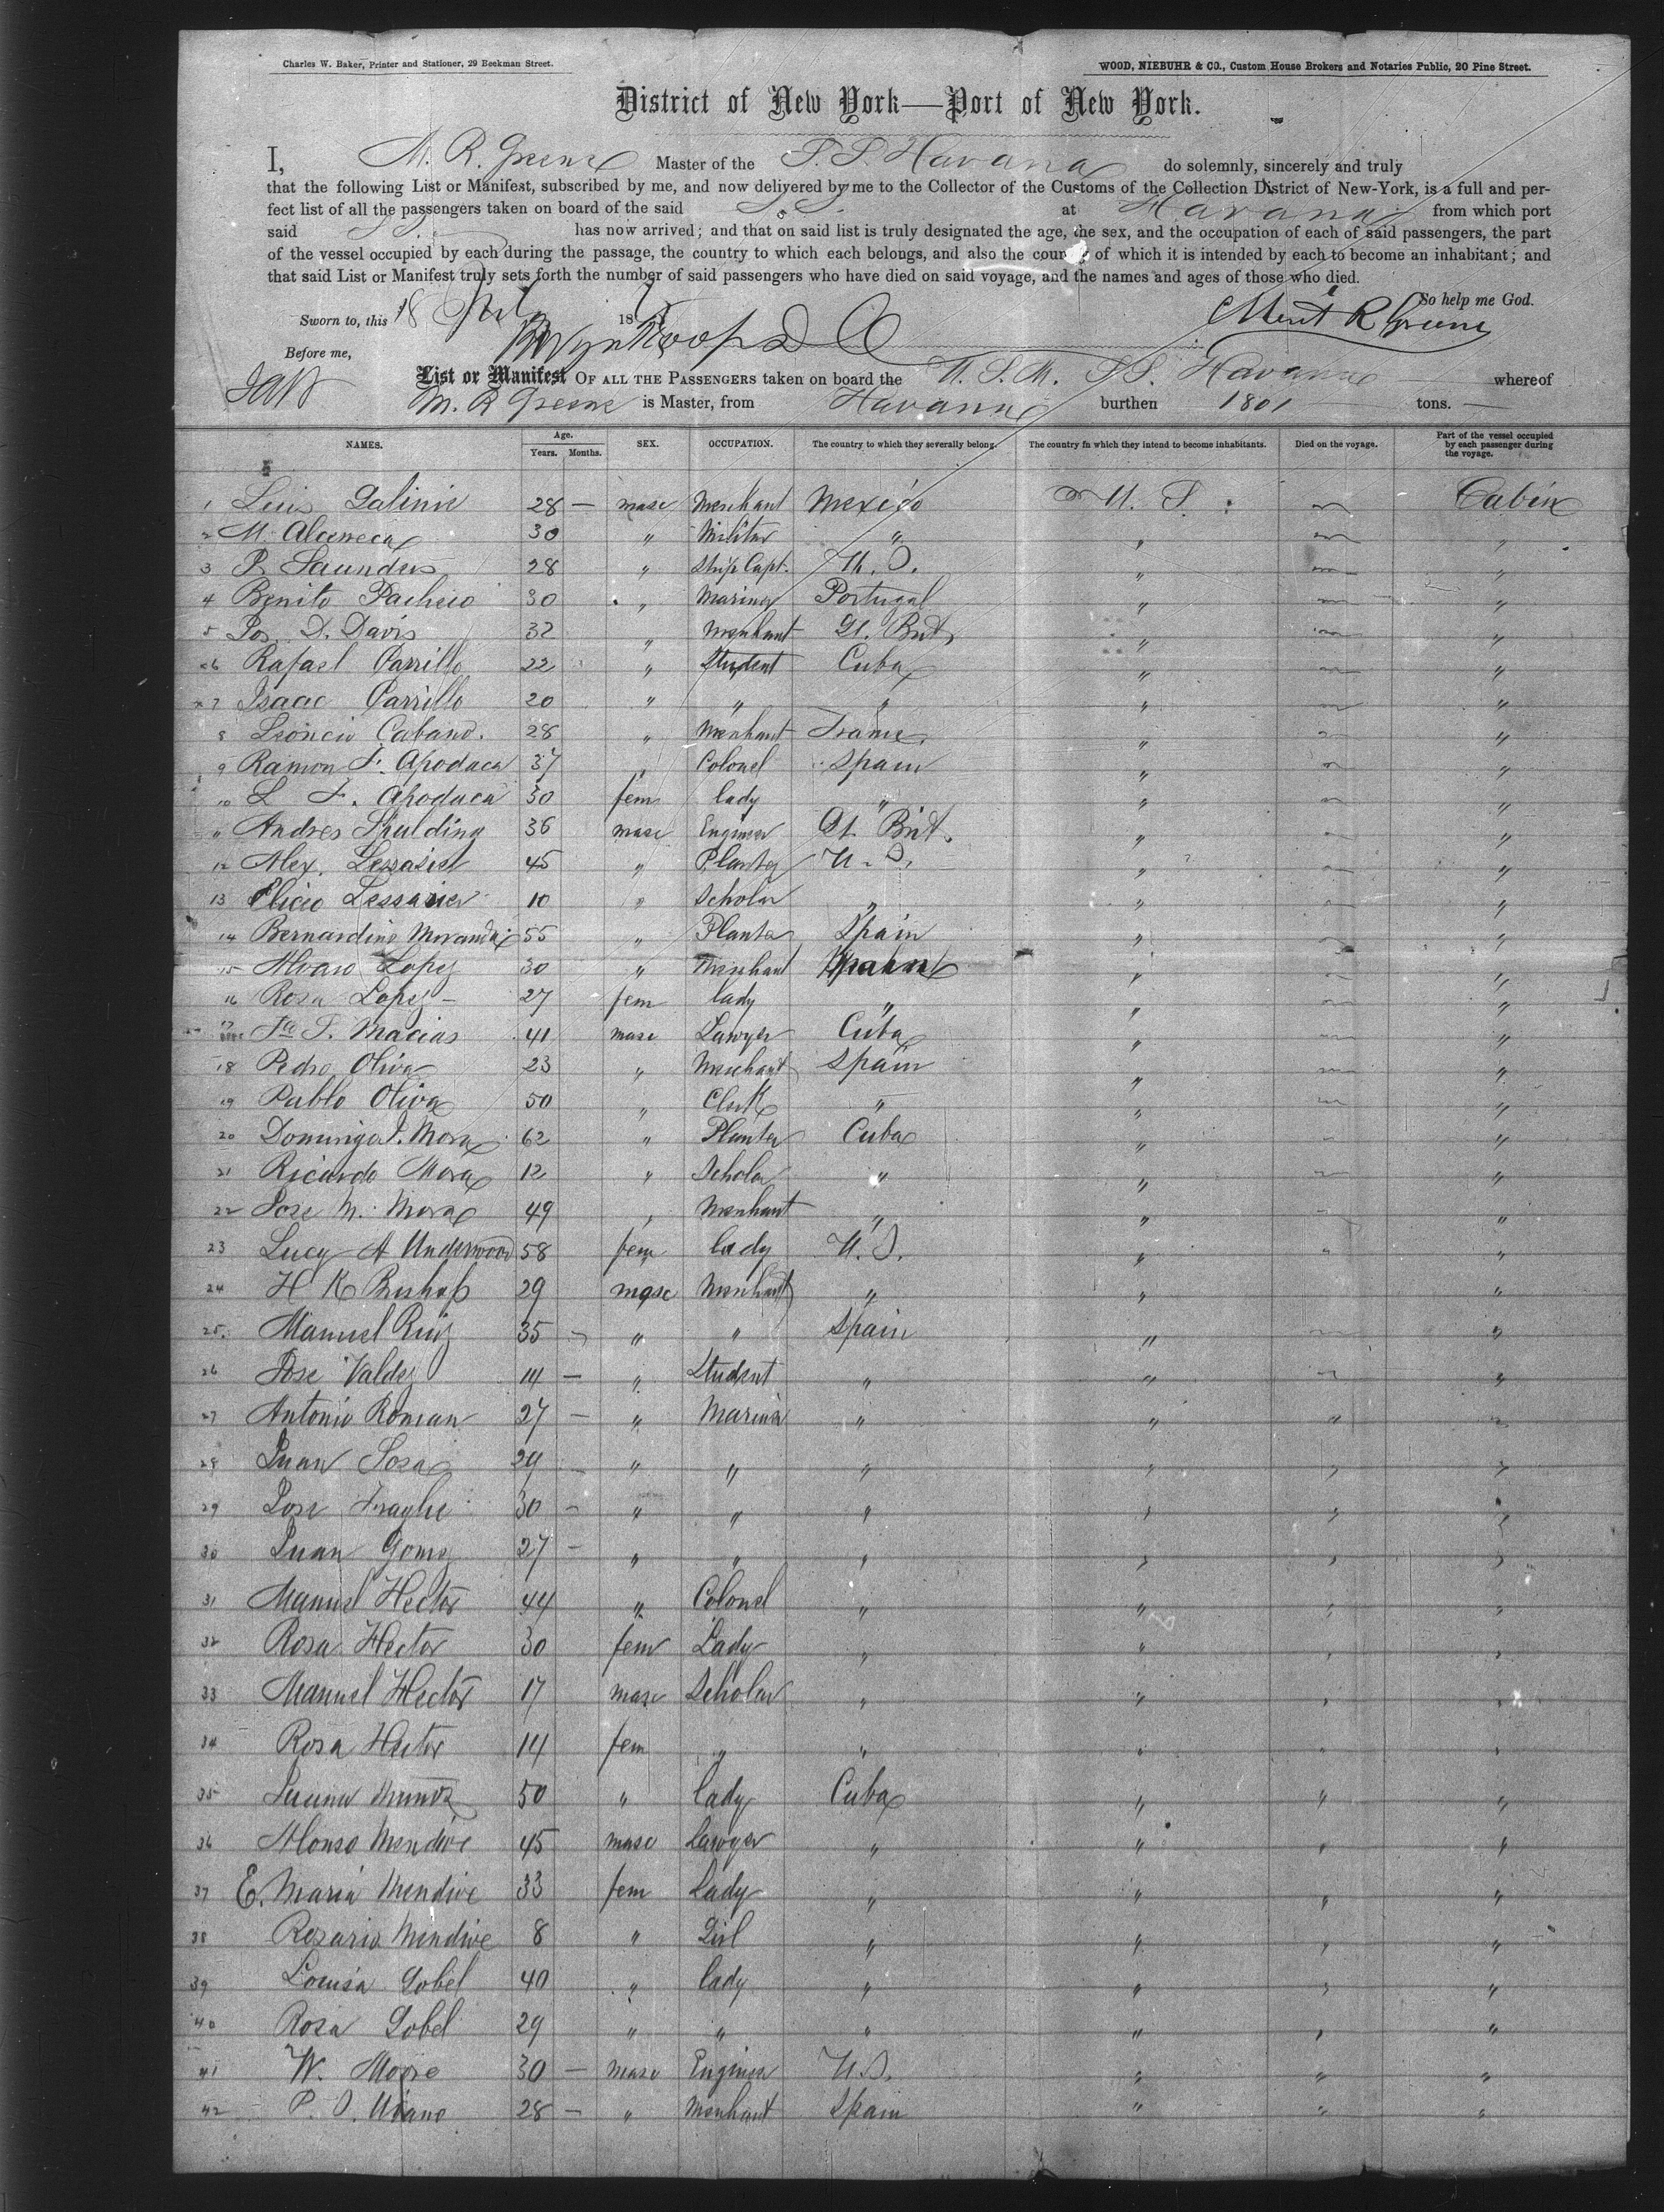 Charles W. Baker, Printer and Stationer, 29 Beekman Street.
WOOD, NIEBUHR & CO., Custom House Brokers and Notaries Public, 20 Pine Street.
District of New York—Port of New York.
I, M. R. Greene Master of the S. S. Havana do solemnly, sincerely and truly
that the following List or Manifest, subscribed by me, and now delivered by me to the Collector of the Customs of the Collection District of New-York, is a full and per-
fect list of all the passengers taken on board of the said S. S. at Havana from which port
said S. S. has now arrived; and that on said list is truly designated the age, the sex, and the occupation of each of said passengers, the part
of the vessel occupied by each during the passage, the country to which each belongs, and also the country of which it is intended by each to become an inhabitant; and
that said List or Manifest truly sets forth the number of said passengers who have died on said voyage, and the names and ages of those who died.
So help me God.
Sworn to, this 18 187
Merit R Greene
Before me,
List or Manifest OF ALL THE PASSENGERS taken on board the U. S. M. SS. Havana whereof
M. R Greene is Master, from Havana burthen 1801 tons.
NAMES. Age. Years. Months. SEX. OCCUPATION. The country to which they severally belong. The country in which they intend to become inhabitants. Died on the voyage. Part of the vessel occupied by each passenger during the voyage.
1 Luis 28 — masc Merchant Mexico U. S. Cabin
2 M. 30 " Militar " " "
3 P. Saunders 28 " Ship Capt. U. S. " "
4 Benito Pacheco 30 " Mariner Portugal " "
5 Jos D. Davis 32 " Merchant Gt. Brit. " "
6 Rafael Parrillo 22 " Student Cuba " "
7 Isaac Parrillo 20 " " " " "
8 Leoncio Cabano. 28 " Merchant France. " "
9 Ramon F. Apodaca 37 " Colonel Spain " "
10 L F. Apodaca 30 fem lady " " "
11 Andres Spulding 36 masc Engineer Gt. Brit. " "
12 Alex. 45 " Planter U. S. " "
13 10 " Scholar " " "
14 Bernardino 55 " Planter Spain " "
15 Alvaro Lopez 30 " Merchant " "
16 Rosa Lopez 27 fem lady " " "
17 Macias 41 masc Lawyer Cuba " "
18 Pedro Oliva 23 " Merchant Spain " "
19 Pablo Oliva 50 " Clerk " " "
20 Domingo Mora 62 " Planter Cuba " "
21 Ricardo Mora 12 " Scholar " " "
22 Jose M. Mora 49 " Merchant " " "
23 Lucy A Underwood 58 fem lady U. S. " " "
24 H K Bishop 29 masc Merchant " " "
25. Manuel Ruiz 35 " " Spain " "
26 Jose Valdez 14 — " Student " " "
27 Antonio Roman 27 — " Mariner " " "
28 Juan Sosa 29 — " " " " " "
29 Jose 30 — " " " " " "
30 Juan Gomez 27 — " " " " " "
31 Manuel Hector 44 " Colonel " " " "
32 Rosa Hector 30 fem Lady " " " "
33 Manuel Hector 17 masc Scholar " " " "
34 Rosa Hector 14 fem " " " " "
35 Munoz 50 " lady Cuba " " "
36 Alonso Mendive 45 masc Lawyer " " " "
37 E. Maria Mendive 33 fem Lady " " " "
38 Rosario Mendive 8 " Girl " " " "
39 Louisa Gobel 40 " lady " " " "
40 Rosa Gobel 29 " " " " " "
41 W. Moore 30 — masc Engineer U.S. " " "
42 28 — " Merchant Spain " " "